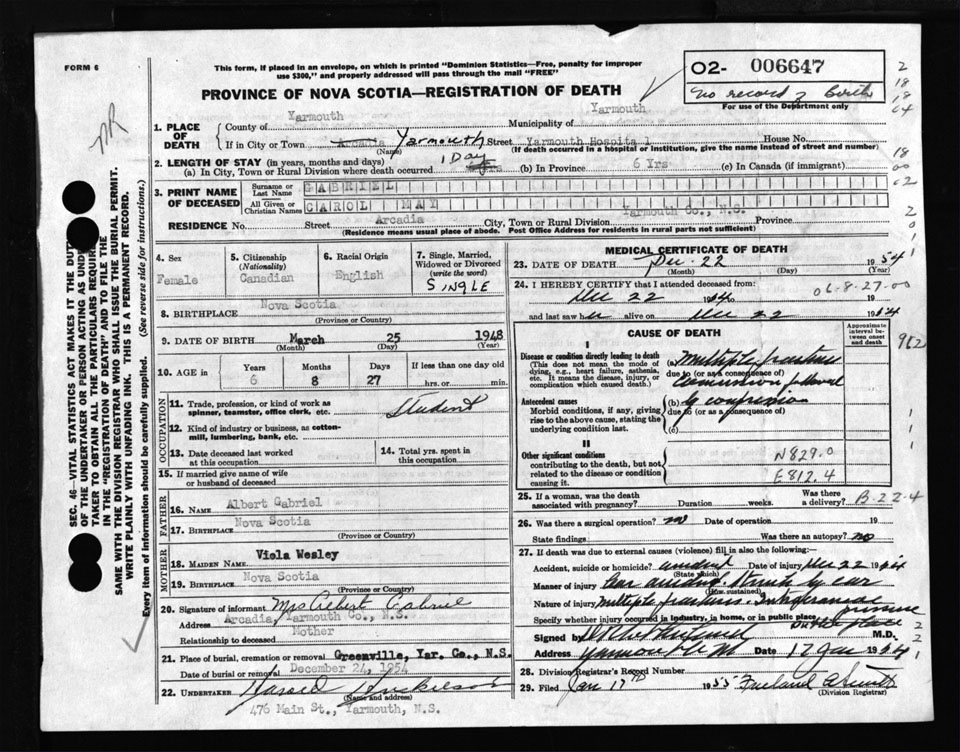 FORM 6
This form, if placed in an envelope, on which is printed "Dominion Statistics—Free, penalty for improper
use $300," and properly addressed will pass through the mail "FREE"
O2- 006647
No record of birth
For use of the Department only
PROVINCE OF NOVA SCOTIA—REGISTRATION OF DEATH
NR
1. PLACE OF DEATH
County of Yarmouth Municipality of Yarmouth
If in City or Town Arcadia Yarmouth Street Yarmouth Hospital House No.
(Name) (If death occurred in a hospital or institution, give the name instead of street and number)
2. LENGTH OF STAY (in years, months and days)
(a) In City, Town or Rural Division where death occurred 1 Day (b) In Province 6 Yrs (c) In Canada (if immigrant)
3. PRINT NAME OF DECEASED
Surname or Last Name GABRIEL
All Given or Christian Names CAROL MAY
RESIDENCE No. Street Arcadia City, Town or Rural Division Yarmouth Co., N.S. Province
(Residence means usual place of abode. Post Office Address for residents in rural parts not sufficient)
4. Sex
Female
5. Citizenship
(Nationality)
Canadian
6. Racial Origin
English
7. Single, Married,
Widowed or Divorced
(write the word)
SINGLE
8. BIRTHPLACE Nova Scotia
(Province or Country)
9. DATE OF BIRTH March 25 1948
(Month) (Day) (Year)
10. AGE in
Years Months Days If less than one day old
6 8 27 hrs. or min.
OCCUPATION
11. Trade, profession, or kind of work as
spinner, teamster, office clerk, etc. Student
12. Kind of industry or business, as cotton-
mill, lumbering, bank, etc.
13. Date deceased last worked
at this occupation
14. Total yrs. spent in
this occupation
15. If married give name of wife
or husband of deceased
FATHER
16. Name Albert Gabriel
17. Birthplace Nova Scotia
(Province or Country)
MOTHER
18. Maiden Name Viola Wesley
19. Birthplace Nova Scotia
(Province or Country)
20. Signature of informant Mrs Albert Gabriel
Address Arcadia, Yarmouth Co., N.S.
Relationship to deceased Mother
21. Place of burial, cremation or removal Greenville, Yar. Co., N.S.
Date of burial or removal December 24, 1954
22. UNDERTAKER Harold
(Name and address)
476 Main St., Yarmouth, N.S.
MEDICAL CERTIFICATE OF DEATH
23. DATE OF DEATH Dec. 22 1954
(Month) (Day) (Year)
24. I HEREBY CERTIFY that I attended deceased from:
06-8-27-00
Dec 22 1954 19
and last saw her alive on Dec 22 1954
CAUSE OF DEATH
Approximate
interval be-
tween onset
and death
I
Disease or condition directly leading to death
(This does not mean the mode of
dying, e.g., heart failure, asthenia,
etc. It means the disease, injury, or
complication which caused death.)
(a) Multiple fracture
due to (or as a consequence of)
Concussion followed
Antecedent causes
Morbid conditions, if any, giving
rise to the above cause, stating the
underlying condition last.
(b) by compression
due to (or as a consequence of)
(c)
II
Other significant conditions
contributing to the death, but not
related to the disease or condition
causing it.
N829.0
E812.4
25. If a woman, was the death
associated with pregnancy? Duration weeks.
Was there
a delivery? B-22-4
26. Was there a surgical operation? no Date of operation 19
State findings Was there an autopsy? no
27. If death was due to external causes (violence) fill in also the following:—
Accident, suicide or homicide? accident Date of injury Dec 22 1954
(State which)
Manner of injury Car accident. Struck by car
(How sustained)
Nature of injury multiple fractures. Intracranial
pressure
Specify whether injury occurred in industry, in home, or in public place Public place
Signed by M.D.
Address Yarmouth NS Date 17 Jan 1954
28. Division Registrar's Record Number
29. Filed Jan 17th 1955 Freeland
(Division Registrar)
SEC. 46 VITAL STATISTICS ACT MAKES IT THE DUTY
OF THE UNDERTAKER OR PERSON ACTING AS UNDER-
TAKER TO OBTAIN ALL THE PARTICULARS REQUIRED
IN THE "REGISTRATION OF DEATH" AND TO FILE THE
SAME WITH THE DIVISION REGISTRAR WHO SHALL ISSUE THE BURIAL PERMIT.
WRITE PLAINLY WITH UNFADING INK. THIS IS A PERMANENT RECORD.
Every item of information should be carefully supplied. (See reverse side for instructions.)
2
18
18
64
18
00
02
2
0
1
1
982
1
1
1
2
2
1